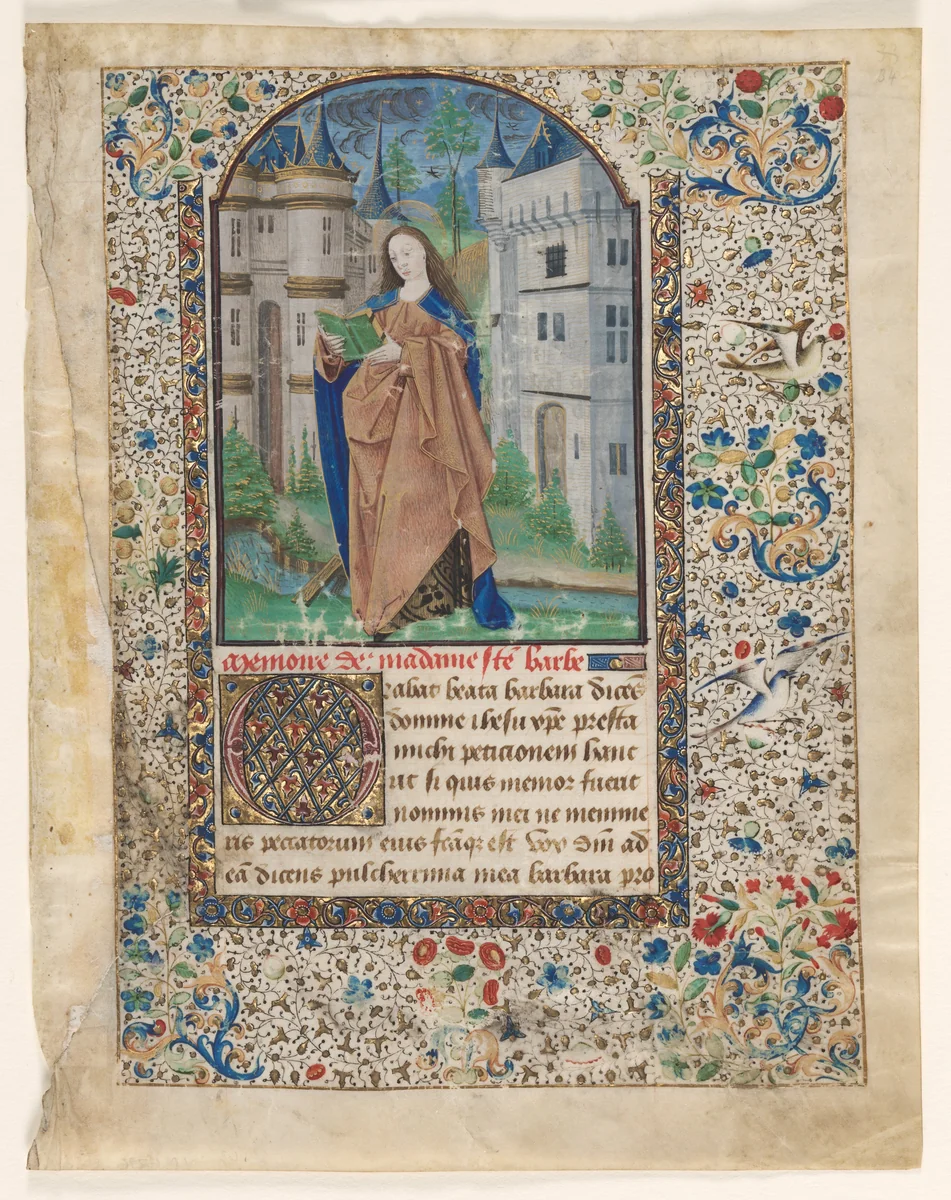 Memoire de madame ste barbe
Orabat beata barbara dices
domine ihesu xpe presta
michi peticionem hanc
ut si quis memor fuerit
nominis mei ne memine
ris peccatorum eius est vox dni ad
ea dicens pulcherrima mea barbara pro